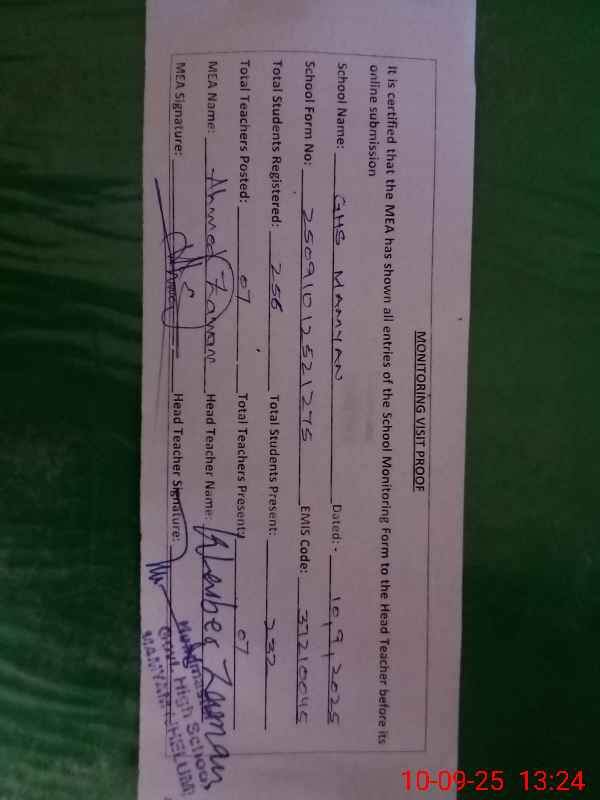 MONITORING VISIT PROOF
It is certified that the MEA has shown all entries of the School Monitoring Form to the Head Teacher before its
online submission
School Name: GHS MAMYAN Dated:- 10,9,2025
School Form No: 25091012521275 EMIS Code: 37210045
Total Students Registered: 256 Total Students Present: 232
Total Teachers Posted: 07 Total Teachers Present: 07
MEA Name: Ahmed Zaman Head Teacher Name: Zaman
MEA Signature: Head Teacher Signature:
Govt. High School
MAMYAM JHELUM
10-09-25 13:24